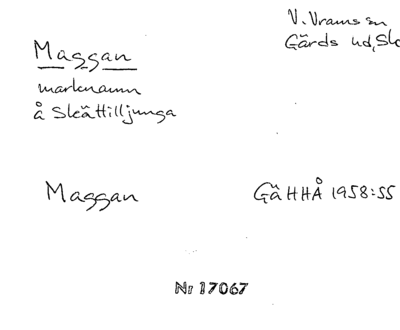 V. Vrams sn
Gärds hd, Sk
Maggan
marknamn
å Skättilljunga
Maggan
GäHHÅ 1958:55
Nr 17067